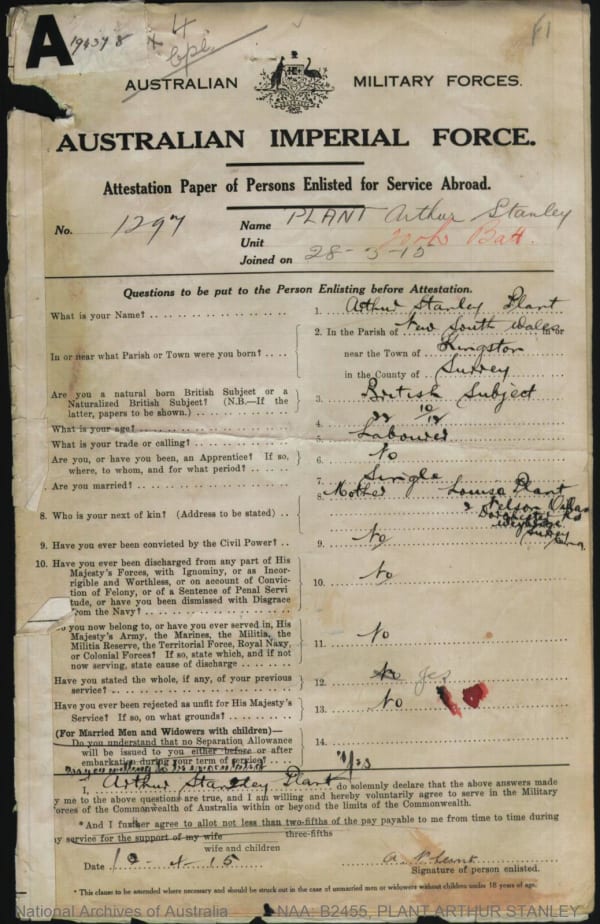 A
194378
4
cpl
AUSTRALIAN MILITARY FORCES.
AUSTRALIAN IMPERIAL FORCE.
Attestation Paper of Persons Enlisted for Service Abroad.
No. 1297 Name PLANT Arthur Stanley
Unit Batt.
Joined on 28-3-15
Questions to be put to the Person Enlisting before Attestation.
What is your Name? 1. Arthur Stanley Plant
In or near what Parish or Town were you born? 2. In the Parish of New South Wales in or
near the Town of Kingston
in the County of Surrey
Are you a natural born British Subject or a Naturalized British Subject? (N.B.—If the latter, papers to be shown.) 3. British Subject
What is your age? 4. 22 10/12
What is your trade or calling? 5. Labourer
Are you, or have you been, an Apprentice? If so, where, to whom, and for what period? 6. No
Are you married? 7. Single
8. Who is your next of kin? (Address to be stated) 8. Mother Louisa Plant
2 Nelson Villas
Dorchester Rd
Weybridge
Surrey
Eng.
9. Have you ever been convicted by the Civil Power? 9. No
10. Have you ever been discharged from any part of His
Majesty's Forces, with Ignominy, or as Incor-
rigible and Worthless, or on account of Convic-
tion of Felony, or of a Sentence of Penal Servi
tude, or have you been dismissed with Disgrace
from the Navy? 10. No
you now belong to, or have you ever served in, His
Majesty's Army, the Marines, the Militia, the
Militia Reserve, the Territorial Force, Royal Navy,
or Colonial Forces? If so, state which, and if not
now serving, state cause of discharge 11. No
Have you stated the whole, if any, of your previous
service? 12. No yes
Have you ever been rejected as unfit for His Majesty's
Service? If so, on what grounds? 13. No
(For Married Men and Widowers with children)—
Do you understand that no Separation Allowance
will be issued to you either before or after
embarkation during your term of service? 14.
I, Arthur Stanley Plant do solemnly declare that the above answers made
by me to the above questions are true, and I am willing and hereby voluntarily agree to serve in the Military
Forces of the Commonwealth of Australia within or beyond the limits of the Commonwealth.
*And I further agree to allot not less than two-fifths of the pay payable to me from time to time during
my service for the support of my wife three-fifths
wife and children
Date 12-4-15 A S Plant
Signature of person enlisted.
* This clause to be amended where necessary and should be struck out in the case of unmarried men or widowers without children under 18 years of age.
National Archives of Australia NAA: B2455, PLANT ARTHUR STANLEY